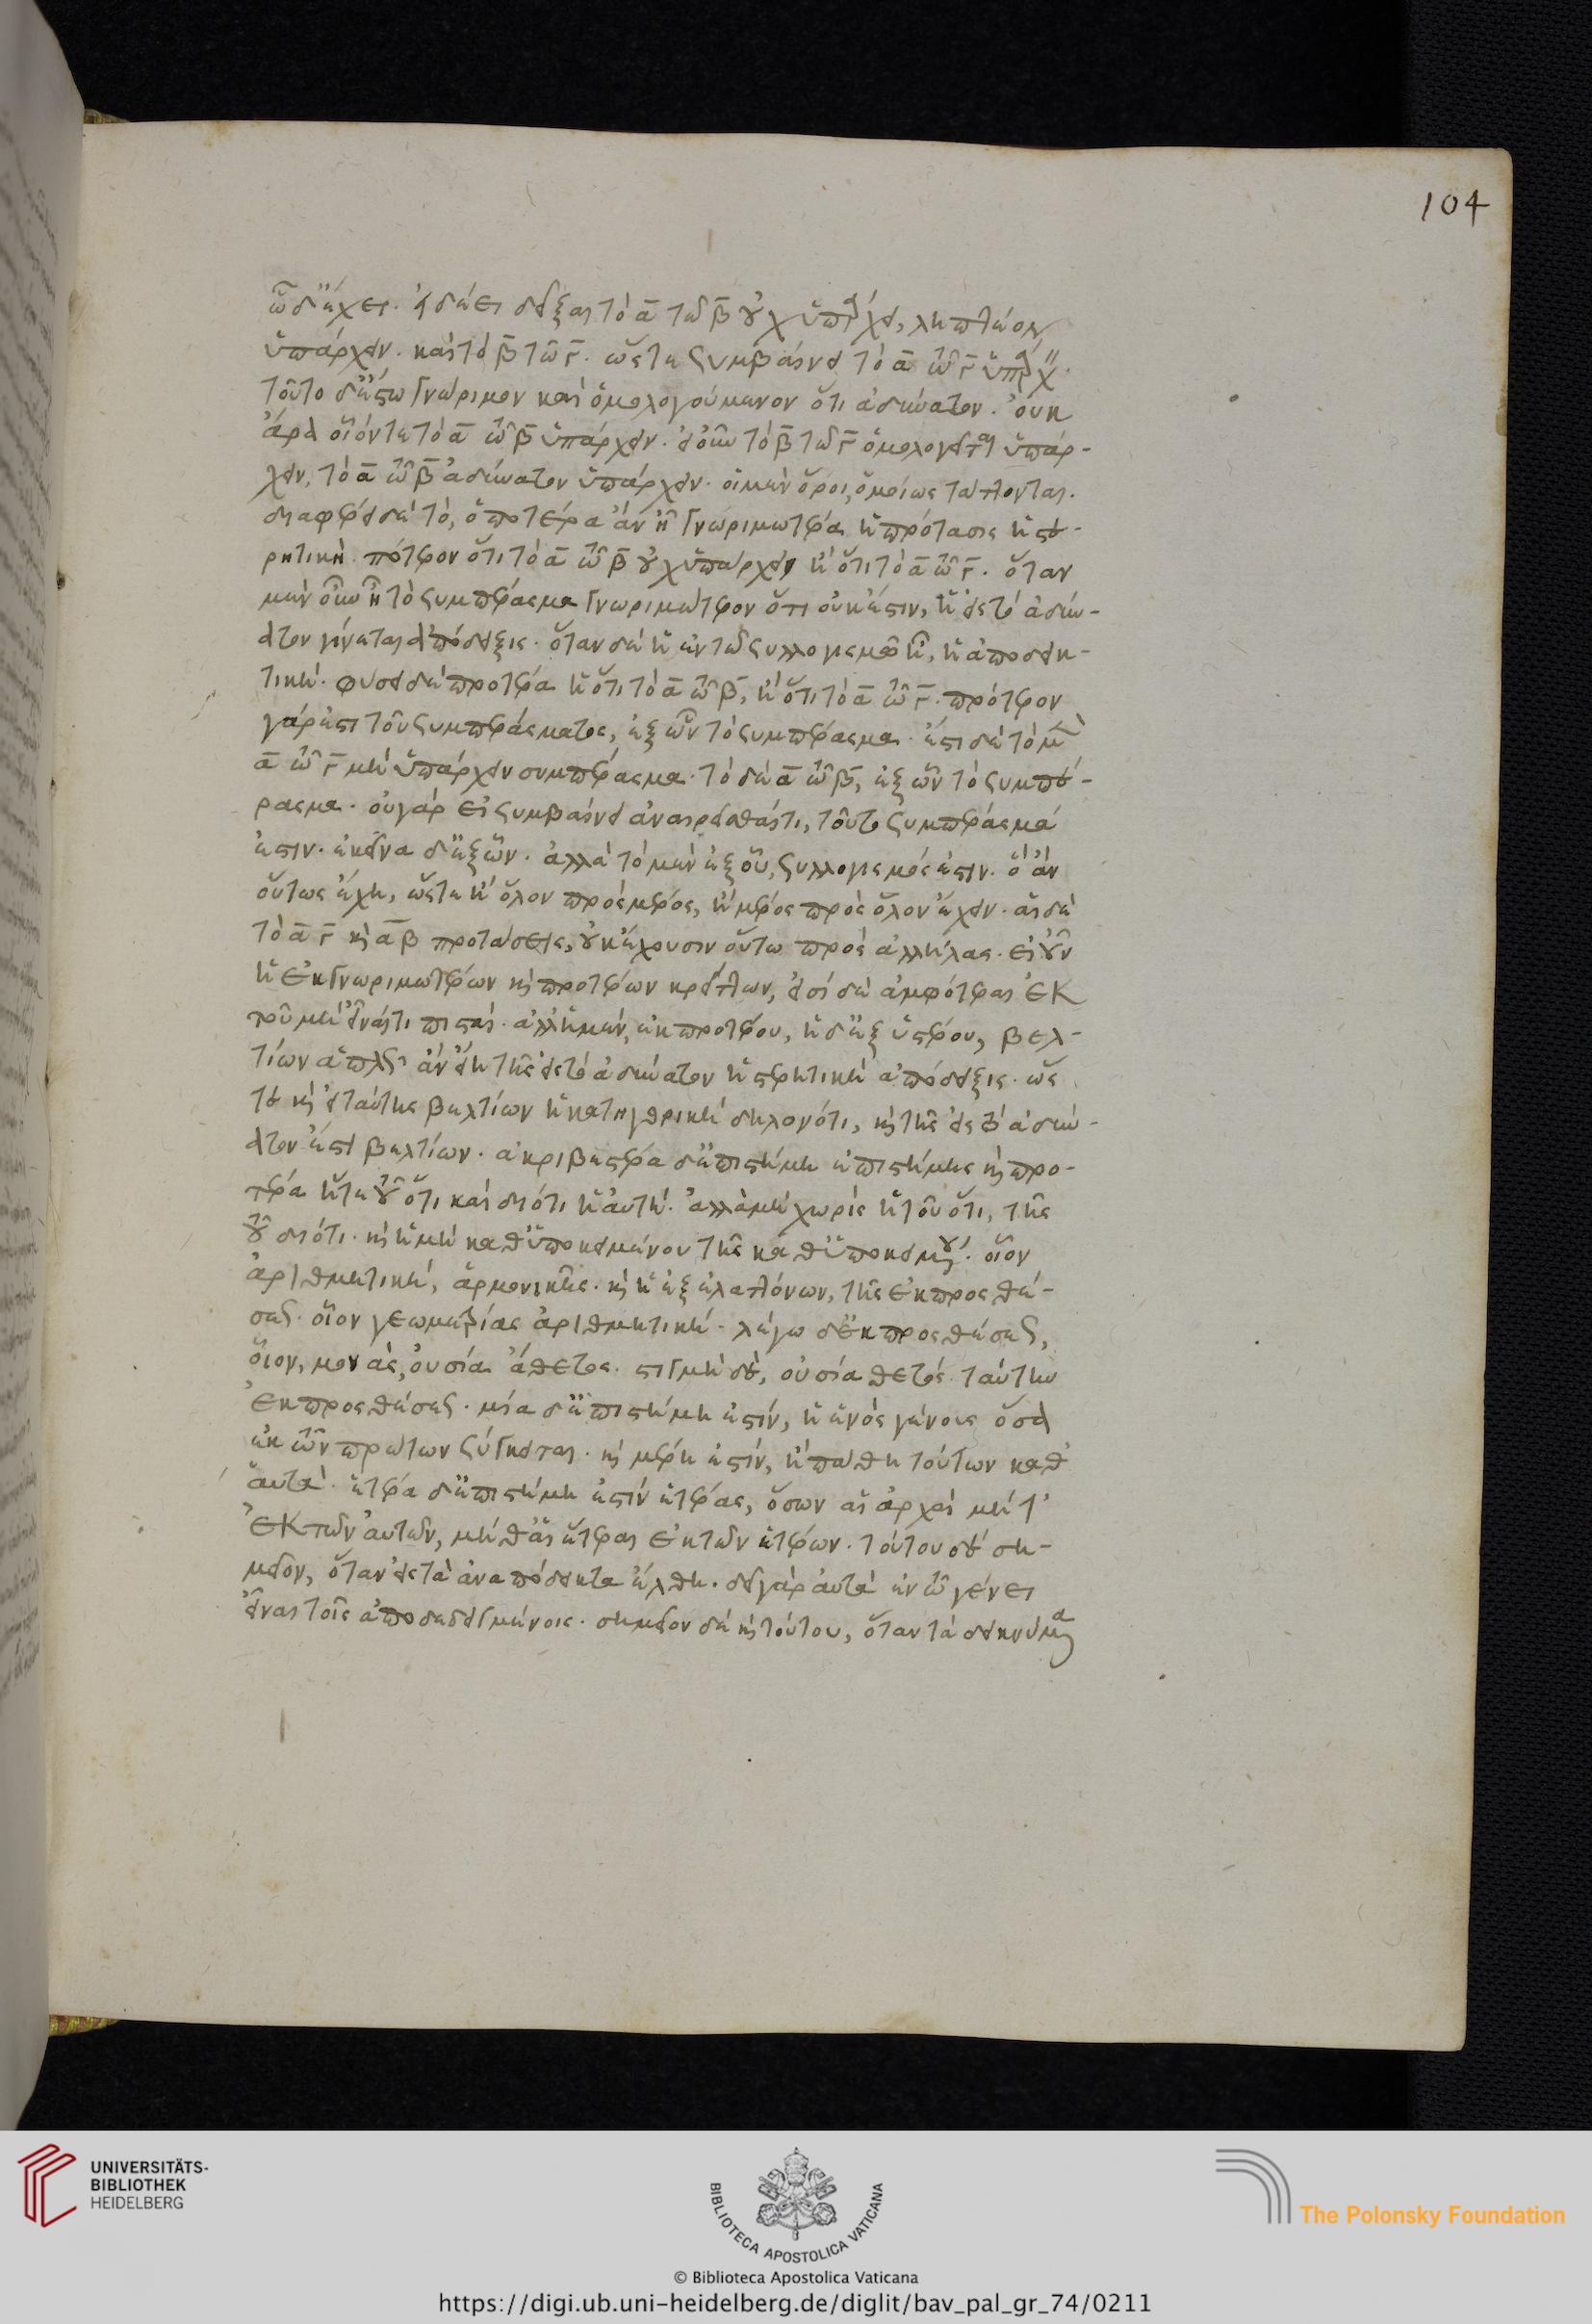 ὧδ' ἔχει. εἰ δέει δεῖξαι τὸ α τῶ β οὐχ ὑπάρχει, ληπτέον
ὑπάρχειν. καὶ τὸ β τῶ γ. ὥστε συμβαίνει τὸ α τῶ γ ὑπάρχ
τοῦτο δ' ἔστω γνώριμον καὶ ὁμολογούμενον ὅτι ἀδύνατον. οὐκ
ἄρα οἷόν τε τὸ α τῶ β ὑπάρχειν. εἰ οὖν τὸ β τῶ γ ὁμολογεῖται ὑπάρ-
χειν, τὸ α τῶ β ἀδύνατον ὑπάρχειν. οἱ μὲν ὅροι, ὁμοίως τάττονται.
διαφέρει δὲ τὸ, ὁποτέρα ἂν ἦ γνωριμωτέρα ἡ πρότασις ἡ στε-
ρητικὴ. πότερον ὅτι τὸ α τῶ β οὐχ ὑπάρχει ἢ ὅτι τὸ α τῶ γ. ὅταν
μὲν οὖν ἦ τὸ συμπέρασμα γνωριμώτερον ὅτι οὐκ ἔστιν, ἡ εἰς τὸ ἀδύ-
ατον γίνεται ἀπόδειξις. ὅταν δὲ ἡ ἐν τῶ συλλογισμῶ ἦ, ἡ ἀποδεικ-
τική. φύσει δὲ προτέρα ἡ ὅτι τὸ α τῶ β, ἢ ὅτι τὸ α τῶ γ. πρότερον
γάρ ἐστι τοῦ συμπεράσματος, ἐξ ὧν τὸ συμπέρασμα. ἔστι δὲ τὸ μὲν
α τῶ γ μὴ ὑπάρχειν συμπέρασμα. τὸ δὲ α τῶ β, ἐξ ὧν τὸ συμπέ-
ρασμα. οὐ γὰρ εἰ συμβαίνει ἀναιρεῖσθαί τι, τοῦτο συμπέρασμά
ἐστιν. ἐκεῖνα δ' ἐξ ὧν. ἀλλὰ τὸ μὲν ἐξ οὗ, συλλογισμός ἐστιν. ὃ ἂν
οὕτως ἔχη, ὥστε ἢ ὅλον πρὸς μέρος, ἢ μέρος πρὸς ὅλον ἔχειν. αἱ δὲ
τὸ α γ καὶ α β προτάσεις, οὐκ ἔχουσιν οὕτω πρὸς ἀλλήλας. εἰ οὖν
ἡ ἐκ γνωριμωτέρων καὶ προτέρων κρείττων, εἰσὶ δὲ ἀμφότεραι ἐκ
τοῦ μὴ εἶναί τι πισταί. ἀλλ' ἡ μὲν, ἐκ προτέρου, ἡ δ' ἐξ ὑστέρου, βελ-
τίων ἁπλῶς ἂν εἴη τῆς εἰς τὸ ἀδύνατον ἡ στερητικὴ ἀπόδειξις. ὥς
τε καὶ εἰ ταύτης βελτίων ἡ κατηγορικὴ δηλονότι, καὶ τῆς εἰς τὸ ἀδύν-
ατον ἐστὶ βελτίων. ἀκριβεστέρα δ' ἐπιστήμη ἐπιστήμης καὶ προ-
τέρα ἥτε τοῦ ὅτι καὶ διότι ἡ αὐτή. ἀλλὰ μὴ χωρὶς ἡ τοῦ ὅτι, τῆς
τοῦ διότι. καὶ ἡ μὴ καθ' ὑποκειμένου τῆς καθ' ὑποκειμένου. οἷον
ἀριθμητικὴ, ἁρμονικῆς. καὶ ἡ ἐξ ἐλαττόνων, τῆς ἐκ προσθέ-
σεως. οἷον γεωμετρίας ἀριθμητική. λέγω δ' ἐκ προσθέσεως,
οἷον, μονὰς, οὐσία ἄθετος. στιγμὴ δὲ, οὐσία θετός. ταύτην
ἐκ προσθέσεως. μία δ' ἐπιστήμη ἐστὶν, ἡ ἑνὸς γένους ὅσα
ἐκ τῶν πρώτων σύγκειται. καὶ μέρη ἐστὶν, ἢ πάθη τούτων καθ'
αὑτά. ἑτέρα δ' ἐπιστήμη ἐστὶν ἑτέρας, ὅσων αἱ ἀρχαὶ μήτ'
ἐκ τῶν αὐτῶν, μήθ' αἱ ἕτεραι ἐκ τῶν ἑτέρων. τούτου δὲ ση-
μεῖον, ὅταν εἰς τὰ ἀναπόδεικτα ἔλθη. δεῖ γὰρ αὐτὰ ἐν τῶ γένει
εἶναι τοῖς ἀποδεδειγμένοις. σημεῖον δὲ καὶ τούτου, ὅταν τὰ δεικνύμενα
104
UNIVERSITÄTS-
BIBLIOTHEK
HEIDELBERG
BIBLIOTECA APOSTOLICA VATICANA
The Polonsky Foundation
© Biblioteca Apostolica Vaticana
https://digi.ub.uni-heidelberg.de/diglit/bav_pal_gr_74/0211